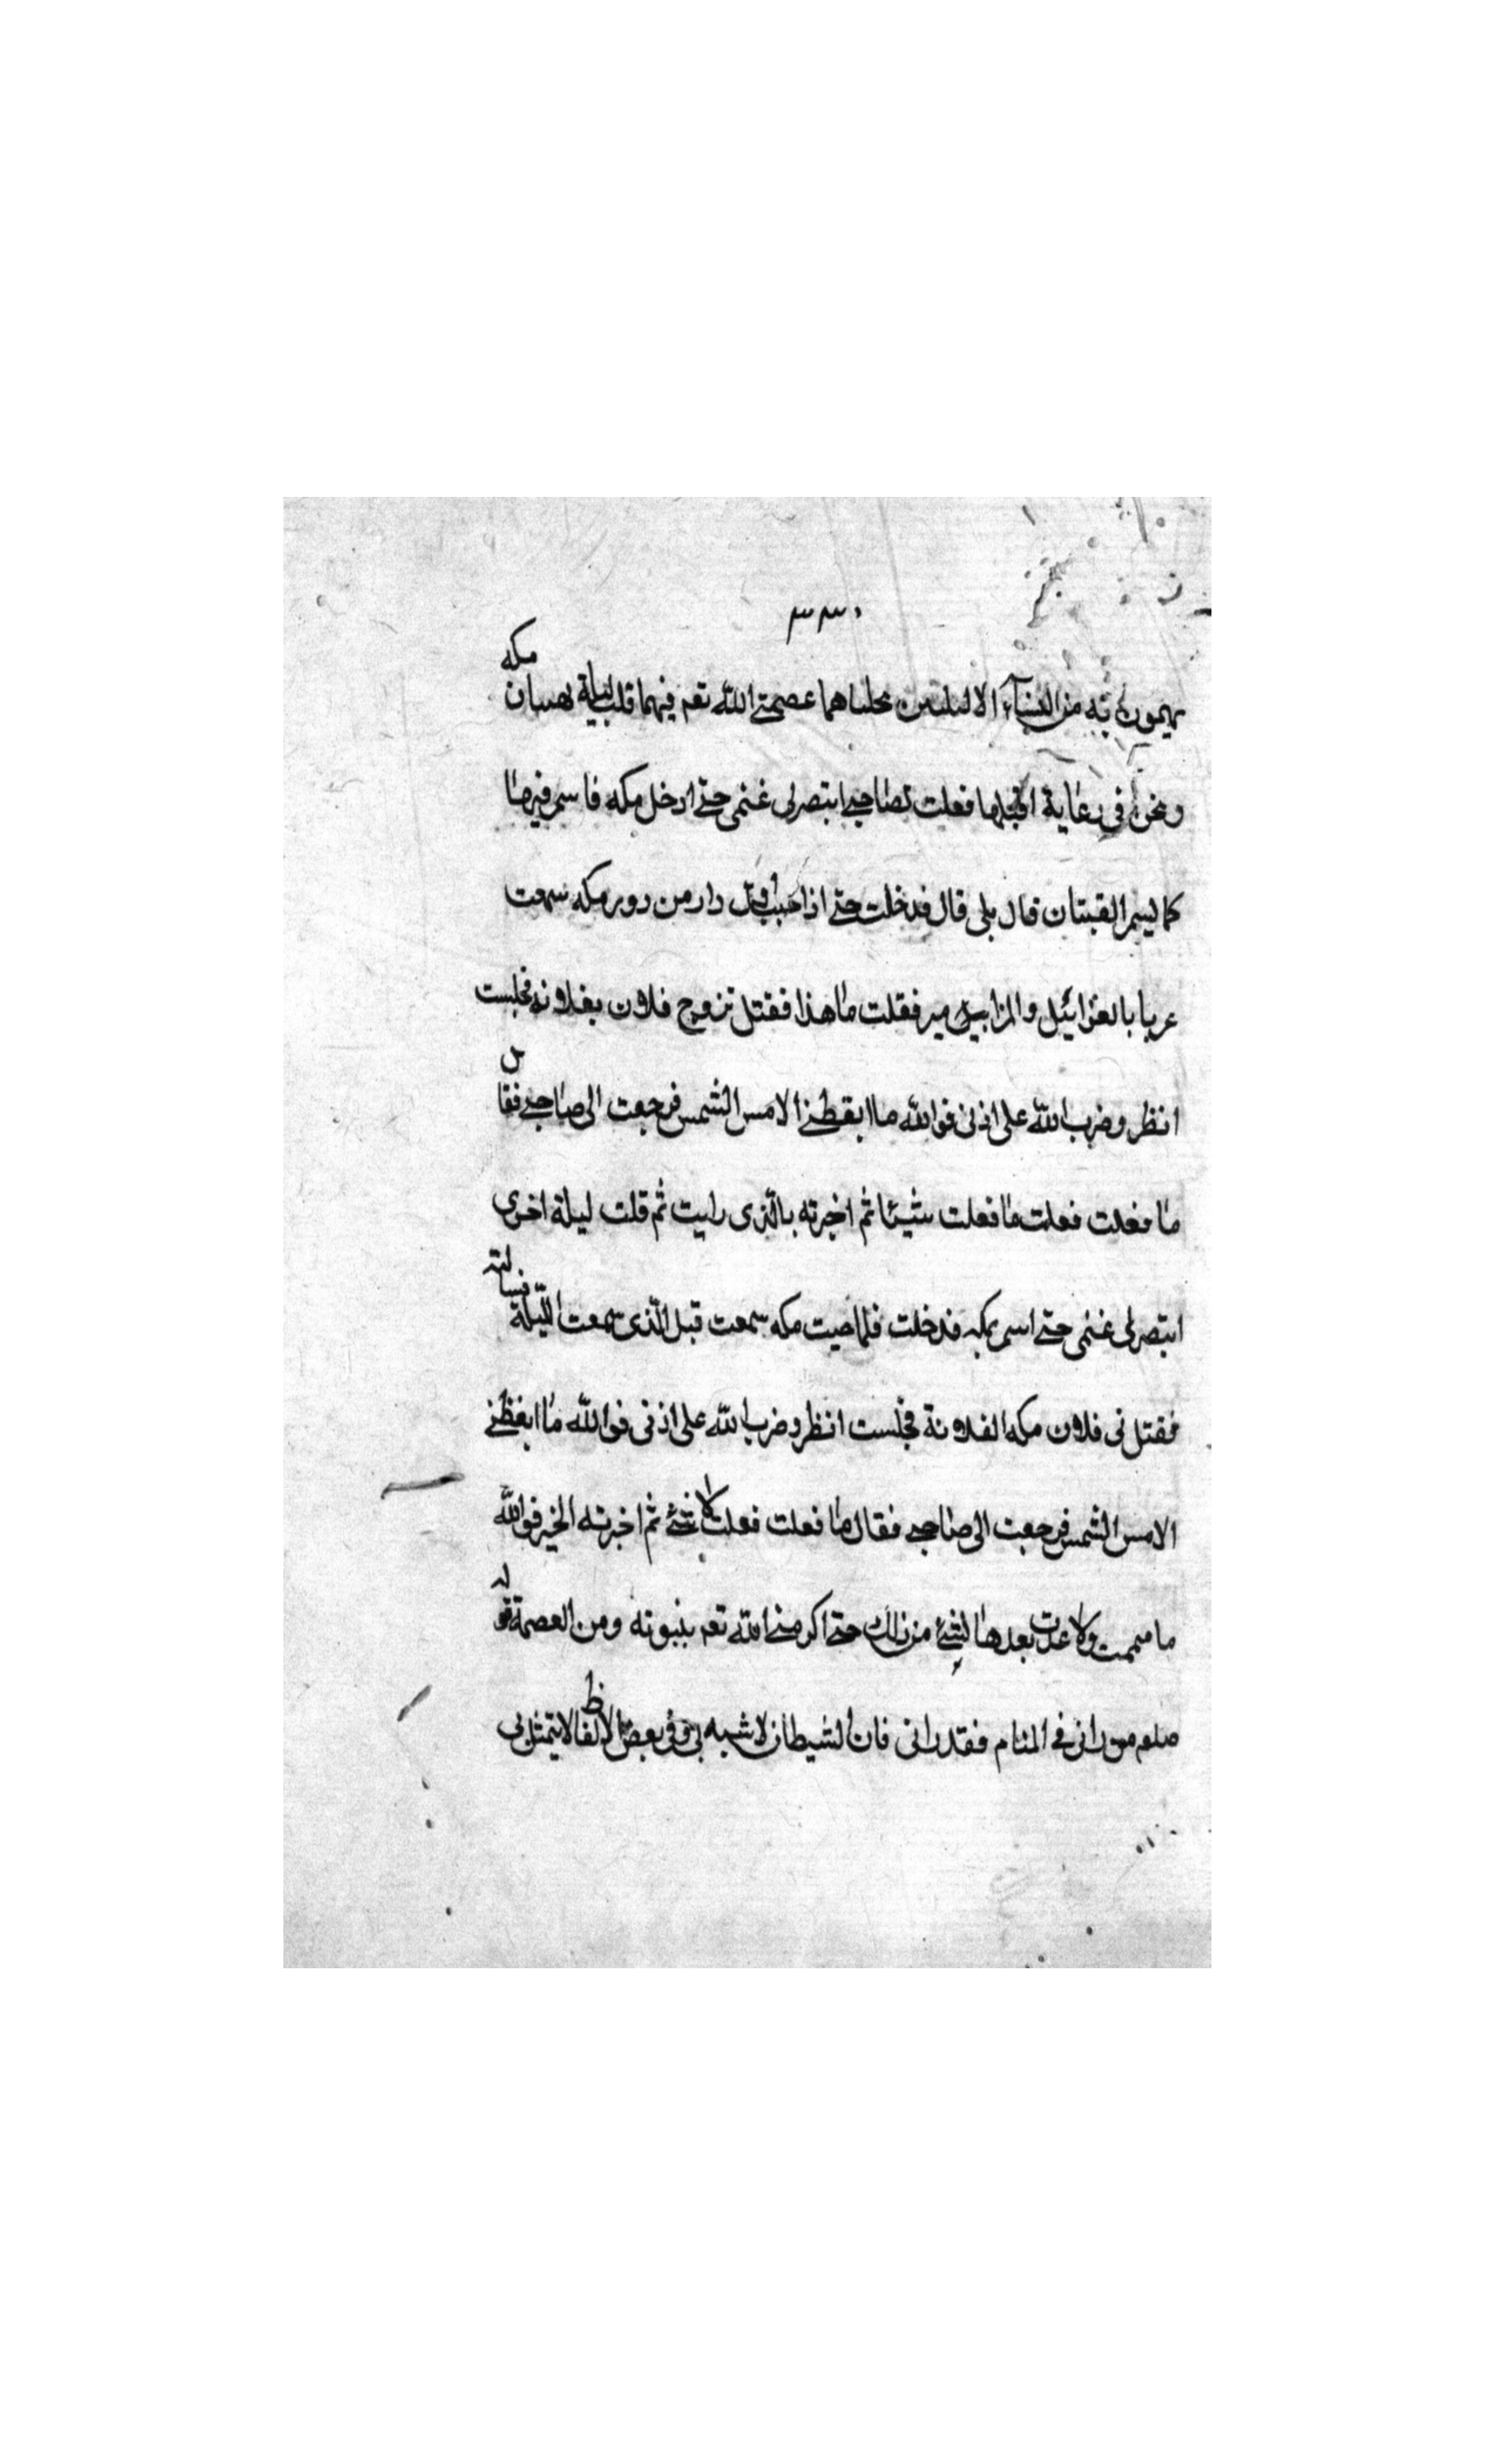 ٣٣٠
يهيمون به من النساء الا ليلتين كلتاهما عصمني الله تعم فيهما قلت ليلة لفتيان مكه
ونحن في رعاية اهلها فقلت لصاحبي ابتصر لي غنمي حتى ادخل مكه فاسمر فيها
كما يسمر الفتيان قال بلى قال فدخلت حتى اذا جئت اول دار من دور مكه سمعت
عزفا بالغرابيل والمزامير فقلت ما هذا فقيل تزوج فلان بفلانه فجلست
انظر وضرب الله على اذنى فوالله ما ايقظني الا مس الشمس فرجعت الى صاحبي فقال
ما فعلت فقلت ما فعلت شيئا ثم اخبرته بالذى رايت ثم قلت ليلة اخرى
ابتصر لى غنمى حتى اسمر بمكه فدخلت فلما جيت مكه سمعت قبل الذى سمعت الليلة فسالته
فقيل نى فلان مكه الفلانة فجلست انظر وضرب الله على اذنى فوالله ما ايقظنى
الا مس الشمس فرجعت الى صاحبي فقال ما فعلت فقلت لا شئ ثم اخبرته الخبر فوالله
ما هممت ولا عدت بعدها لشئ من ذلك حتى اكرمنى الله تعم بنبوته ومن العصمة قوله
صلعم من رانى فى المنام فقد رانى فان الشيطان لا شبه بى وفى بعض الالفاظ لا يتمثل بى